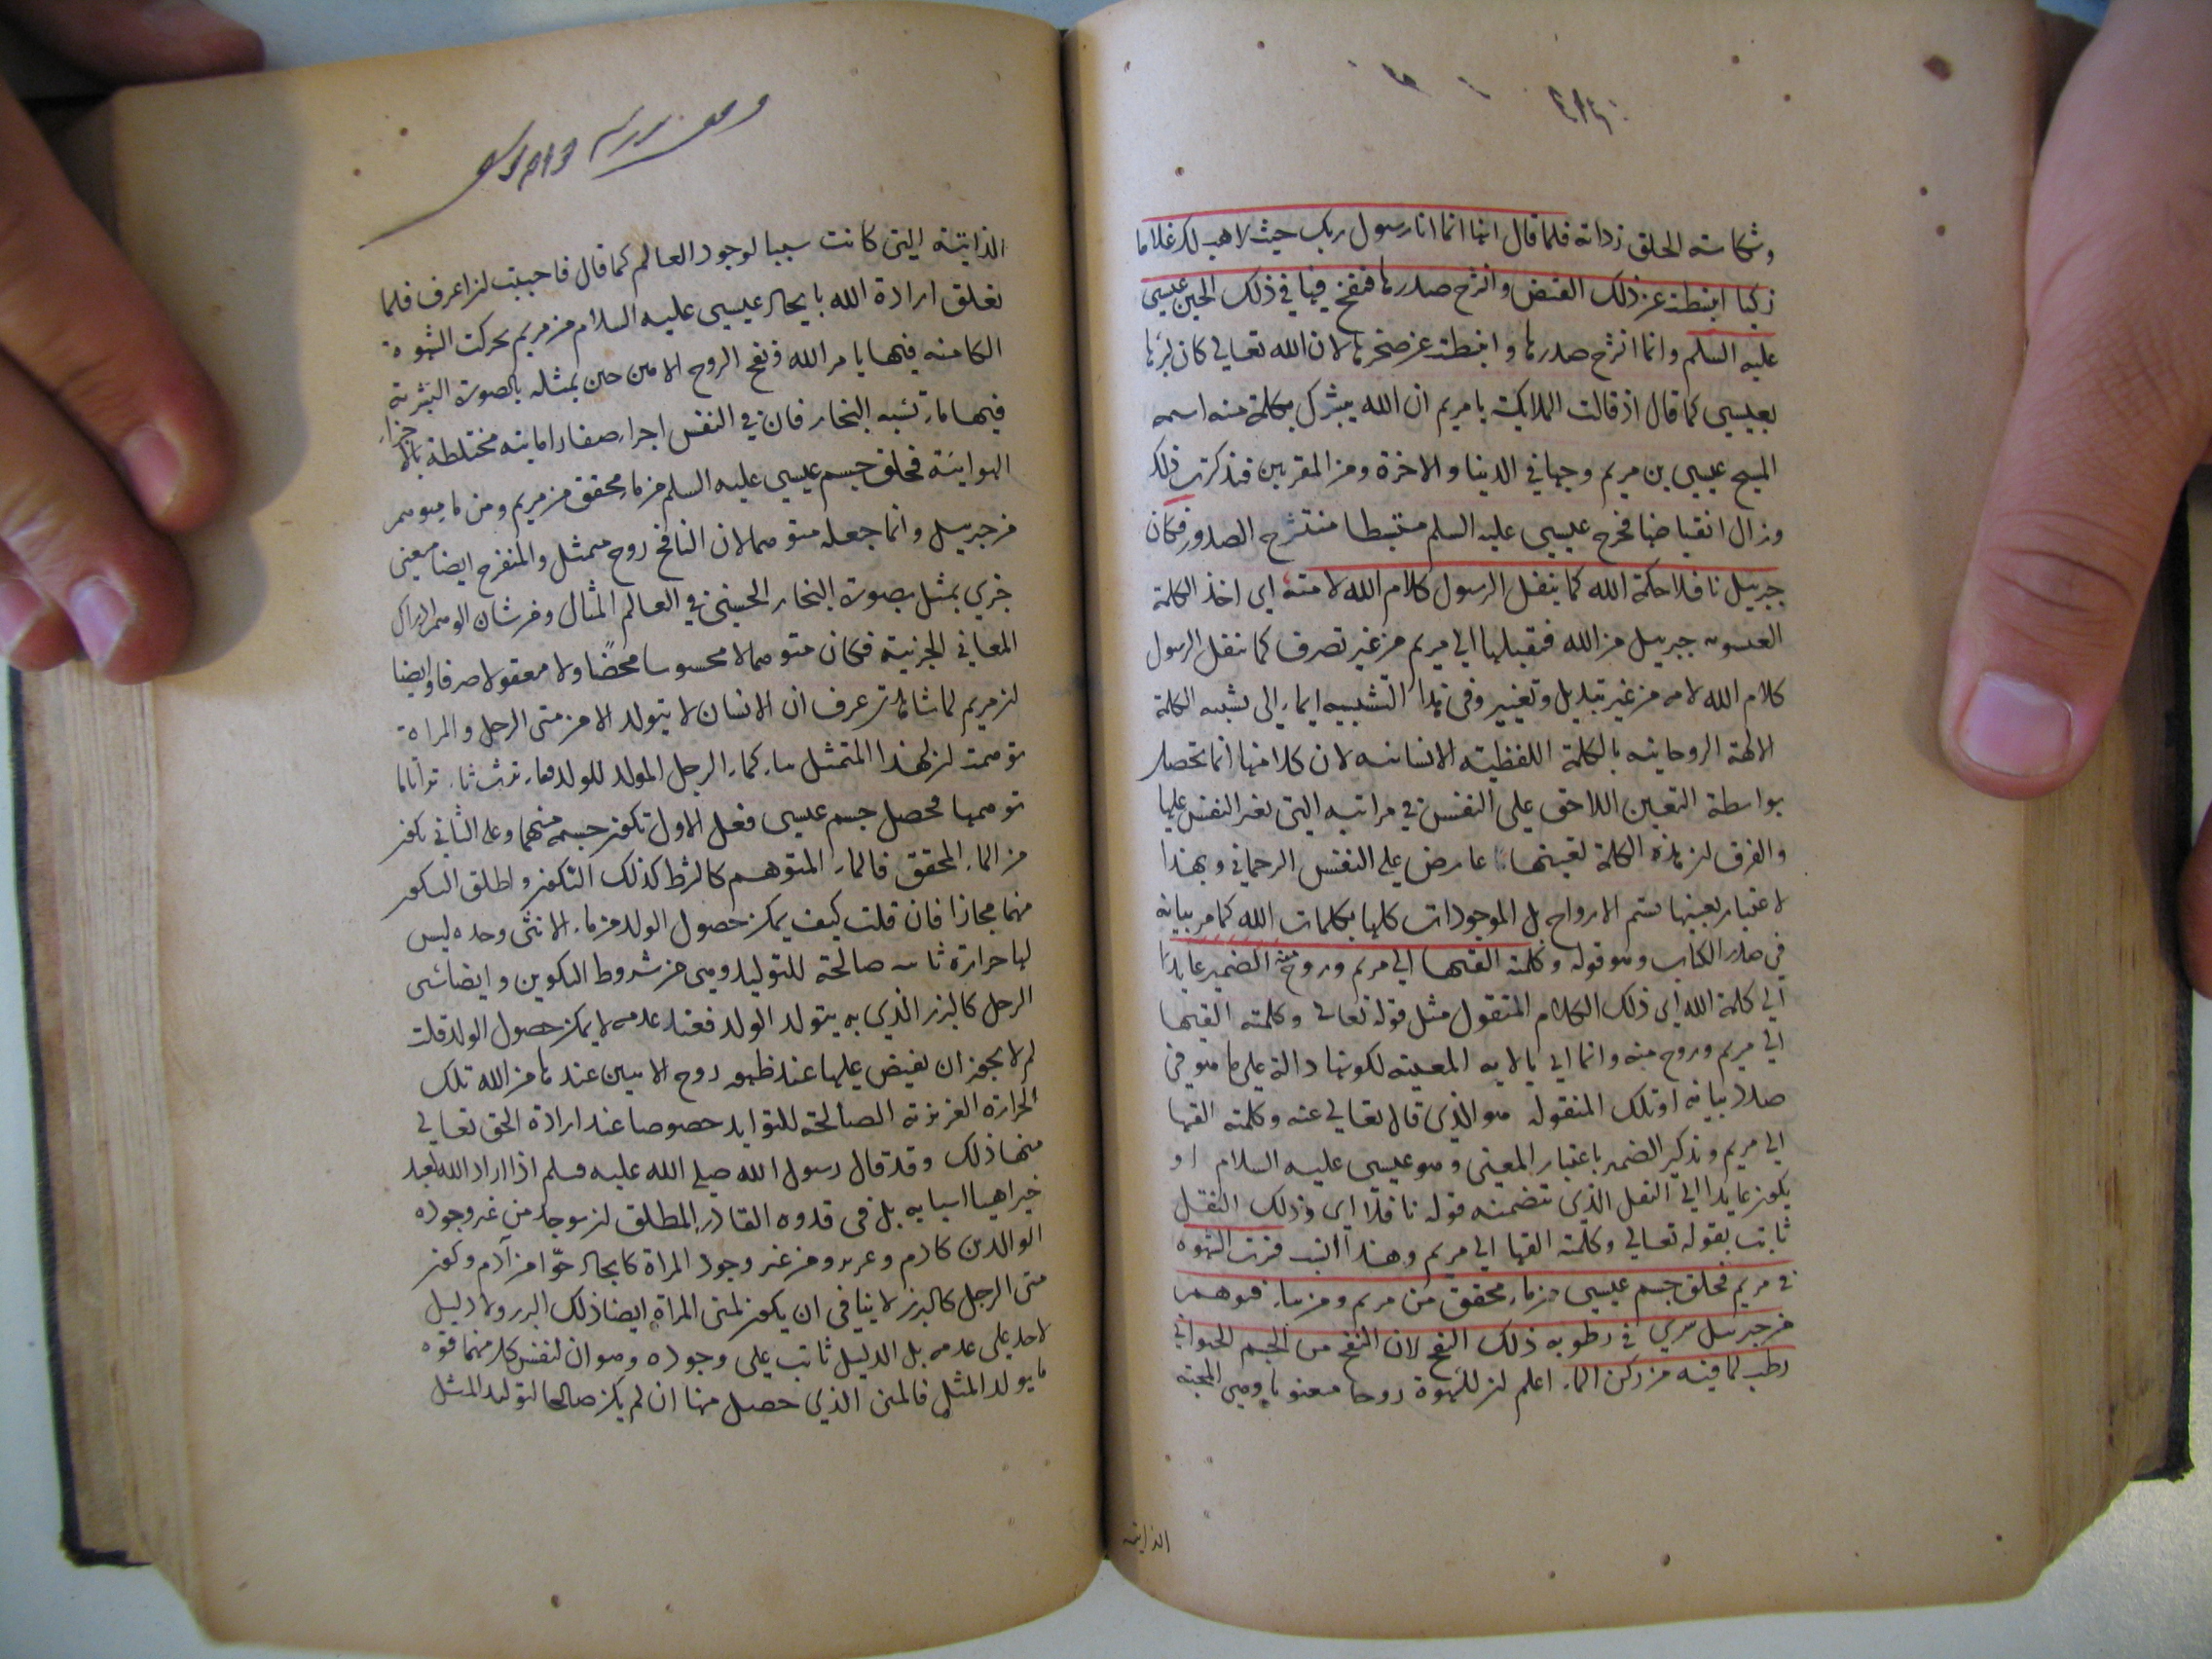 وشكاسة الخلق زداته فلما قال انما انا رسول ربك حيث لاهب لك غلاما
زكيا انبسطت عن ذلك القبض وانشرح صدرها فنفخ فيها في ذلك الحين عيسى
عليه السلم وانما انشرح صدرها وانبسطت عن ضجرها لان الله تعالى كان بشرها
بعيسى كما قال اذ قالت الملايكة يا مريم ان الله يبشرك بكلمة منه اسمه
المسيح عيسى بن مريم وجيها في الدنيا والاخرة ومن المقربين فتذكرت ذلك
وزال انقباضها فخرج عيسى عليه السلم منبسطا منشرح الصدور فكان
جبرييل ناقلا كلمة الله كما ينقل الرسول كلام الله لامته اى اخذ الكلمة
العيسوية جبرييل من الله فنقلها الى مريم من غير تصرف كما ينقل الرسول
كلام الله لامته من غير تبديل وتغيير وفى هذا التشبيه ايماء الى تشبيه الكلمة
الالهية الروحانية بالكلمة اللفظية الانسانية لان كلا منها انما تحصل
بواسطة التعين اللاحق على النفس في مراتبه التى تعبر النفس عليها
والفرق ان هذه الكلمة تعينها عارض على النفس الرحمانى وبهذا
لاعتبار بعينها تسم الارواح بل الموجودات كلها بكلمات الله كما مر بيانه
في صدر الكتاب وهو قوله وكلمته القيها الى مريم وروح منه الضمير عايد
الى كلمة الله اى ذلك الكلام المنقول مثل قوله تعالى وكلمته القيها
الى مريم وروح منه وانما اتى بالاية المعينة لكونها دالة على ما هو في
صدد بيانه او تلك المنقولة هو الذى قال تعالى عنه وكلمته القيها
الى مريم وتذكير الضمير باعتبار المعنى وهو عيسى عليه السلام او
يكون عايدا الى النقل الذى تتضمنه قوله ناقلا اى وذلك النقل
ثابت بقوله تعالى وكلمته القيها الى مريم وهذا انسب فسرت الشهوة
في مريم فخلق جسم عيسى من ماء محقق من مريم ومن ماء متوهم
من جبرييل سرى في رطوبة ذلك النفخ لان النفخ من الجسم الحيوانى
رطب لما فيه من ركن الماء اعلم ان للشهوة روحا معنويا وهى المحبة
الذاتية
الذاتية التى كانت سببا لوجود العالم كما قال فاحببت ان اعرف فلما
تعلق ارادة الله بايجاد عيسى عليه السلام من مريم تحركت الشهوة
الكامنة فيها بامر الله ونفخ الروح الامين حين تمثله بالصورة البشرية
فيها ماء تشبه البخار فان في النفس اجزاء صغارا مائية مختلطة بالاجزاء
الهوائية فخلق جسم عيسى عليه السلم من ماء محقق من مريم ومن ماء متوهم
من جبرييل وانما جعله متوهما لان النافخ روح متمثل والمنفوخ ايضا معنى
جزى تمثل بصورة البخار الحسى في العالم المثال ومن شان الوهم ادراك
المعاني الجزئية فكان متوهما لا محسوسا محضا ولا معقولا صرفا وايضا
ان مريم لما شاهدته عرف ان الانسان لا يتولد الا من منى الرجل والمراة
توهمت ان لهذا المتمثل ماء كماء الرجل المولد للولد
توهمها فحصل جسم عيسى فعلى الاول تكون جسمه منهما وعلى الثاني تكون
من الماء المحقق فالماء المتوهم كالشرط كذلك التكون واطلق التكون
منهما مجازا فان قلت كيف يمكن حصول الولد من ماء الانثى وحده ليس
لها حرارة صالحة للتوليد وهى من شروط التكوين وايضا منى
الرجل كالبزر الذى به يتولد الولد فعند عدمه لا يمكن حصول الولد قلت
لم لا يجوز ان تفيض عليها عند ظهور روح الامين عندها من الله تلك
الحرارة الغريزية الصالحة للتوليد خصوصا عند ارادة الحق تعالى
منها ذلك وقد قال رسول الله صلى الله عليه وسلم اذا اراد الله بعبد
خيرا هيا اسبابه بل في قدرة القادر المطلق ان يوجد من غير وجود
الوالدين كادم وعزير ومن غير وجود المراة كايجاد حوا من آدم وكون
منى الرجل كالبزر لا ينافي ان يكون لمنى المراة ايضا ذلك البزر ولا دليل
لاحد على عدمه بل الدليل ثابت على وجوده وهو ان لنفس كل منهما قوة
ما يولد المثل فالمنى الذى حصل منها ان لم يكن صالحا لتوليد المثل